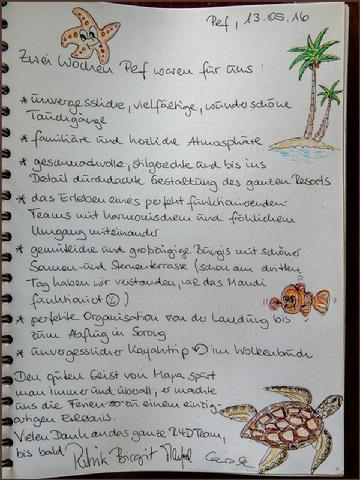 Pef, 13.05.16
Zwei Wochen Pef waren für uns:
* unvergessliche, vielfältige, wunderschöne
Tauchgänge
* familiäre und herzliche Atmosphäre
* geschmackvolle, stilgerechte und bis ins
Detail durchdachte Gestaltung des ganzen Resorts
* das Erleben eines perfekt funktionierenden
Teams mit harmonischem und fröhlichem
Umgang miteinander
* gemütliche und großzügige Bungis mit schöner
Sonnen- und Sternenterrasse (schon am dritten
Tag haben wir verstanden, wie das Mandi
funktioniert ☺)
* perfekte Organisation von der Landung bis
zum Abflug in Sorong
* unvergesslicher Kajaktrip im Wolkenbruch
Den guten Geist von Maya spürt
man immer und überall, er machte
uns die Ferien zu einem einzig-
artigen Erlebnis.
Vielen Dank an das ganze R4D Team,
bis bald Patrik Birgit